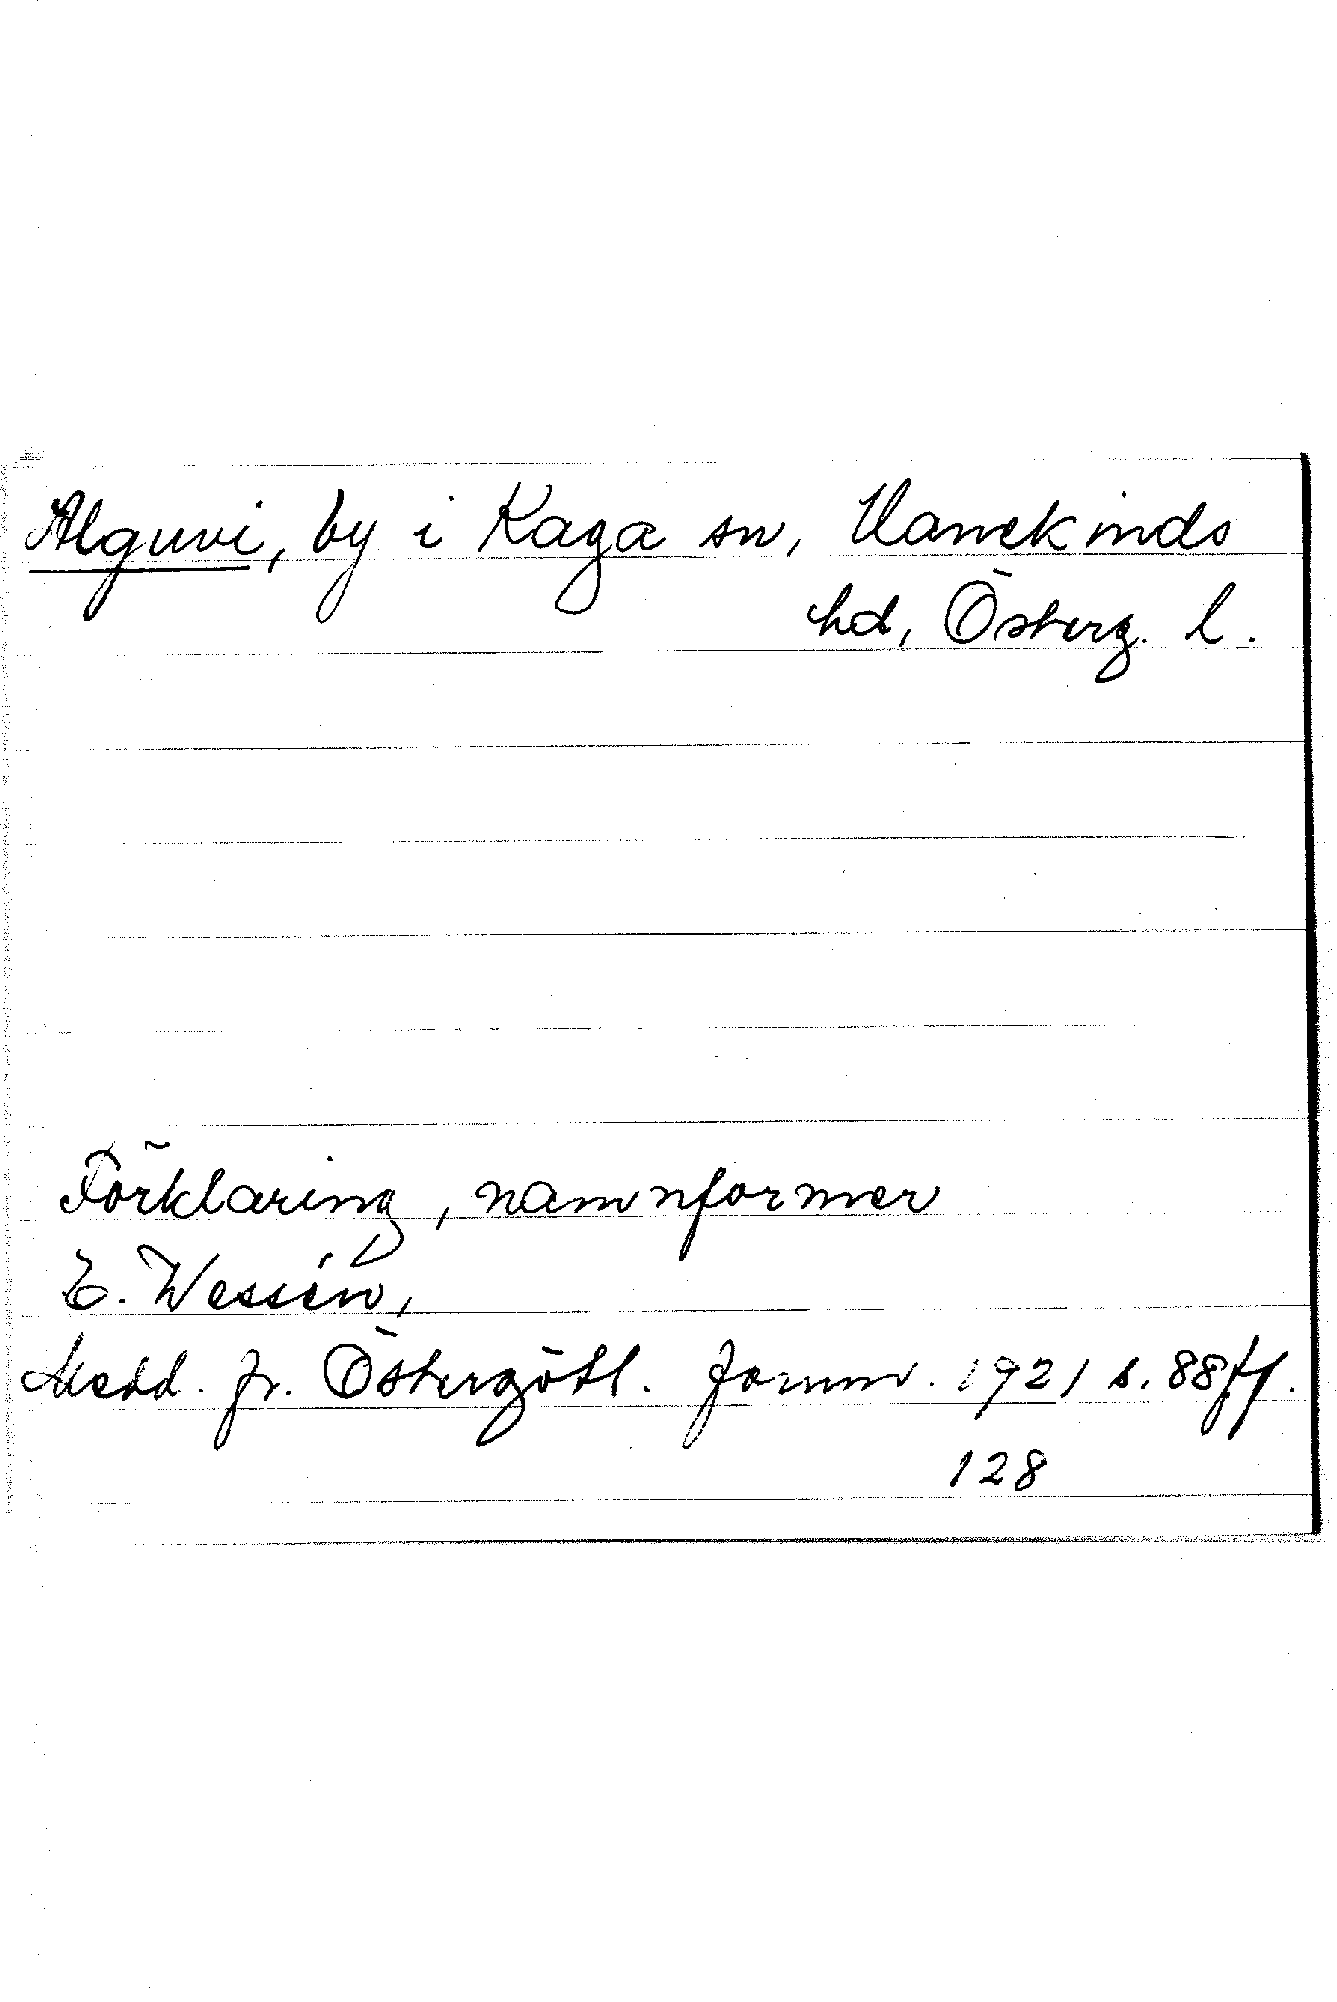 Alguvi, by i Kaga sn, Hanekinds
hd, Österg. l.
Förklaring, namnformer
E. Wessén,
Medd. fr. Östergötl. fornm. 1921 s. 88 ff.
128